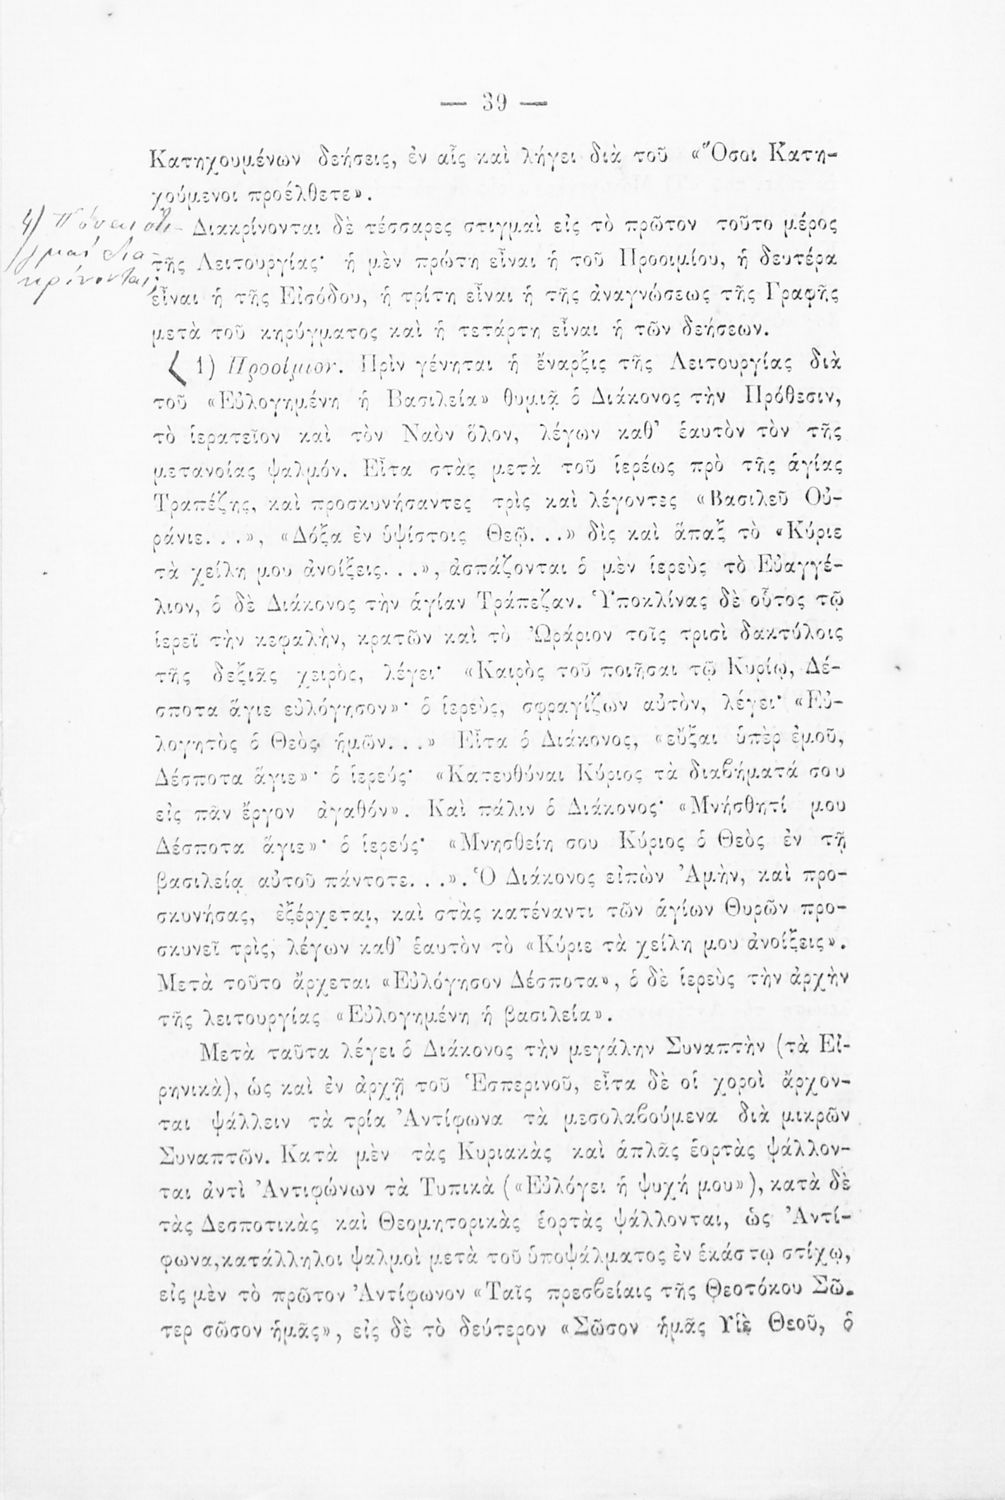 — 39 —
Κατηχουμένων δεήσεις, ἐν αἷς καὶ λήγει διὰ τοῦ «Ὅσοι Κατη-
χούμενοι προέλθετε».
4) Πόσαι στι-
γμαὶ δια
κρίνονται;
Διακρίνονται δὲ τέσσαρες στιγμαὶ εἰς τὸ πρῶτον τοῦτο μέρος
τῆς Λειτουργίας· ἡ μὲν πρώτη εἶναι ἡ τοῦ Προοιμίου, ἡ δευτέρα
εἶναι ἡ τῆς Εἰσόδου, ἡ τρίτη εἶναι ἡ τῆς ἀναγνώσεως τῆς Γραφῆς
μετὰ τοῦ κηρύγματος καὶ ἡ τετάρτη εἶναι ἡ τῶν δεήσεων.
1) Προοίμιον. Πρὶν γένηται ἡ ἔναρξις τῆς Λειτουργίας διὰ
τοῦ «Εὐλογημένη ἡ Βασιλεία» θυμιᾷ ὁ Διάκονος τὴν Πρόθεσιν,
τὸ ἱερατεῖον καὶ τὸν Ναὸν ὅλον, λέγων καθ' ἑαυτὸν τὸν τῆς
μετανοίας ψαλμόν. Εἶτα στὰς μετὰ τοῦ ἱερέως πρὸ τῆς ἁγίας
Τραπέζης, καὶ προσκυνήσαντες τρὶς καὶ λέγοντες «Βασιλεῦ Οὐ-
ράνιε. . .», «Δόξα ἐν ὑψίστοις Θεῷ. . .» δὶς καὶ ἅπαξ τὸ «Κύριε
τὰ χείλη μου ἀνοίξεις. . .», ἀσπάζονται ὁ μὲν ἱερεὺς τὸ Εὐαγγέ-
λιον, ὁ δὲ Διάκονος τὴν ἁγίαν Τράπεζαν. Ὑποκλίνας δὲ οὗτος τῷ
ἱερεῖ τὴν κεφαλὴν, κρατῶν καὶ τὸ Ὠράριον τοῖς τρισὶ δακτύλοις
τῆς δεξιᾶς χειρὸς, λέγει· «Καιρὸς τοῦ ποιῆσαι τῷ Κυρίῳ, Δέ-
σποτα ἅγιε εὐλόγησον»· ὁ ἱερεὺς, σφραγίζων αὐτὸν, λέγει· «Εὐ-
λογητὸς ὁ Θεὸς ἡμῶν. . .» Εἶτα ὁ Διάκονος, «εὖξαι ὑπὲρ ἐμοῦ,
Δέσποτα ἅγιε»· ὁ ἱερεύς· «Κατευθύναι Κύριος τὰ διαβήματά σου
εἰς πᾶν ἔργον ἀγαθόν». Καὶ πάλιν ὁ Διάκονος· «Μνήσθητί μου
Δέσποτα ἅγιε»· ὁ ἱερεύς· «Μνησθείη σου Κύριος ὁ Θεὸς ἐν τῇ
βασιλείᾳ αὐτοῦ πάντοτε. . .». Ὁ Διάκονος εἰπὼν Ἀμὴν, καὶ προ-
σκυνήσας, ἐξέρχεται, καὶ στὰς κατέναντι τῶν ἁγίων Θυρῶν προ-
σκυνεῖ τρὶς, λέγων καθ' ἑαυτὸν τὸ «Κύριε τὰ χείλη μου ἀνοίξεις».
Μετὰ τοῦτο ἄρχεται «Εὐλόγησον Δέσποτα», ὁ δὲ ἱερεὺς τὴν ἀρχὴν
τῆς λειτουργίας «Εὐλογημένη ἡ βασιλεία».
Μετὰ ταῦτα λέγει ὁ Διάκονος τὴν μεγάλην Συναπτὴν (τὰ Εἰ-
ρηνικὰ), ὡς καὶ ἐν ἀρχῇ τοῦ Ἑσπερινοῦ, εἶτα δὲ οἱ χοροὶ ἄρχον-
ται ψάλλειν τὰ τρία Ἀντίφωνα τὰ μεσολαβούμενα διὰ μικρῶν
Συναπτῶν. Κατὰ μὲν τὰς Κυριακὰς καὶ ἁπλᾶς ἑορτὰς ψάλλον-
ται ἀντὶ Ἀντιφώνων τὰ Τυπικὰ («Εὐλόγει ἡ ψυχή μου»), κατὰ δὲ
τὰς Δεσποτικὰς καὶ Θεομητορικὰς ἑορτὰς ψάλλονται, ὡς Ἀντί-
φωνα, κατάλληλοι ψαλμοὶ μετὰ τοῦ ὑποψάλματος ἐν ἑκάστῳ στίχῳ,
εἰς μὲν τὸ πρῶτον Ἀντίφωνον «Ταῖς πρεσβείαις τῆς Θεοτόκου Σῶ-
τερ σῶσον ἡμᾶς», εἰς δὲ τὸ δεύτερον «Σῶσον ἡμᾶς Υἱὲ Θεοῦ, ὁ